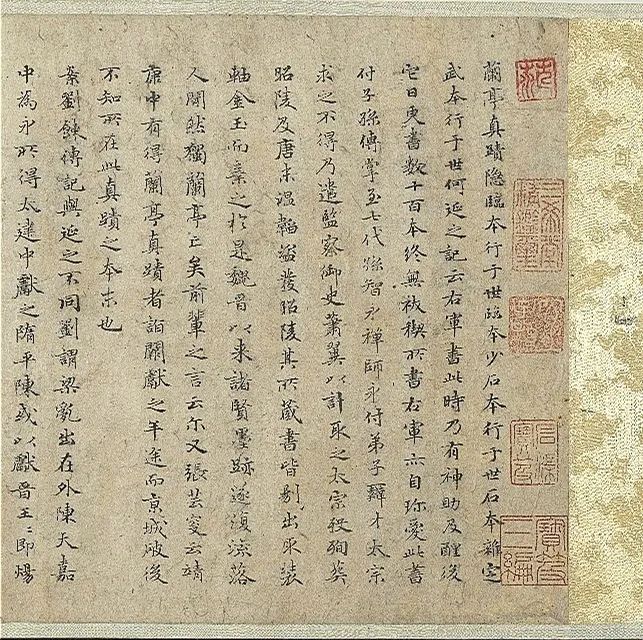 三希堂
精鑑璽
寶笈
三編
蘭亭真蹟隱臨本行于世臨本少石本行于世石本雜定
武本行于世何延之記云右軍書此時乃有神助及醒後
它日更書數十百本終無祓禊所書右軍亦自珍愛此書
付子孫傳掌至七代孫智永禪師永付弟子辯才太宗
求之不得乃遣監察御史蕭翼以計取之太宗歿殉葬
昭陵及唐末溫韜盜發昭陵其所藏書皆剔出取裝
軸金玉而棄之於是魏晉以來諸賢墨跡遂復流落
人間然獨蘭亭亡矣前輩之言云尒又張芸叟云靖
康中有得蘭亭真蹟者詣闕獻之半途而京城破後
不知所在此真蹟之本末也
案劉餗傳記與延之不同劉謂梁亂出在外陳天嘉
中為永所得太建中獻之隋平陳或以獻晉王〻即煬